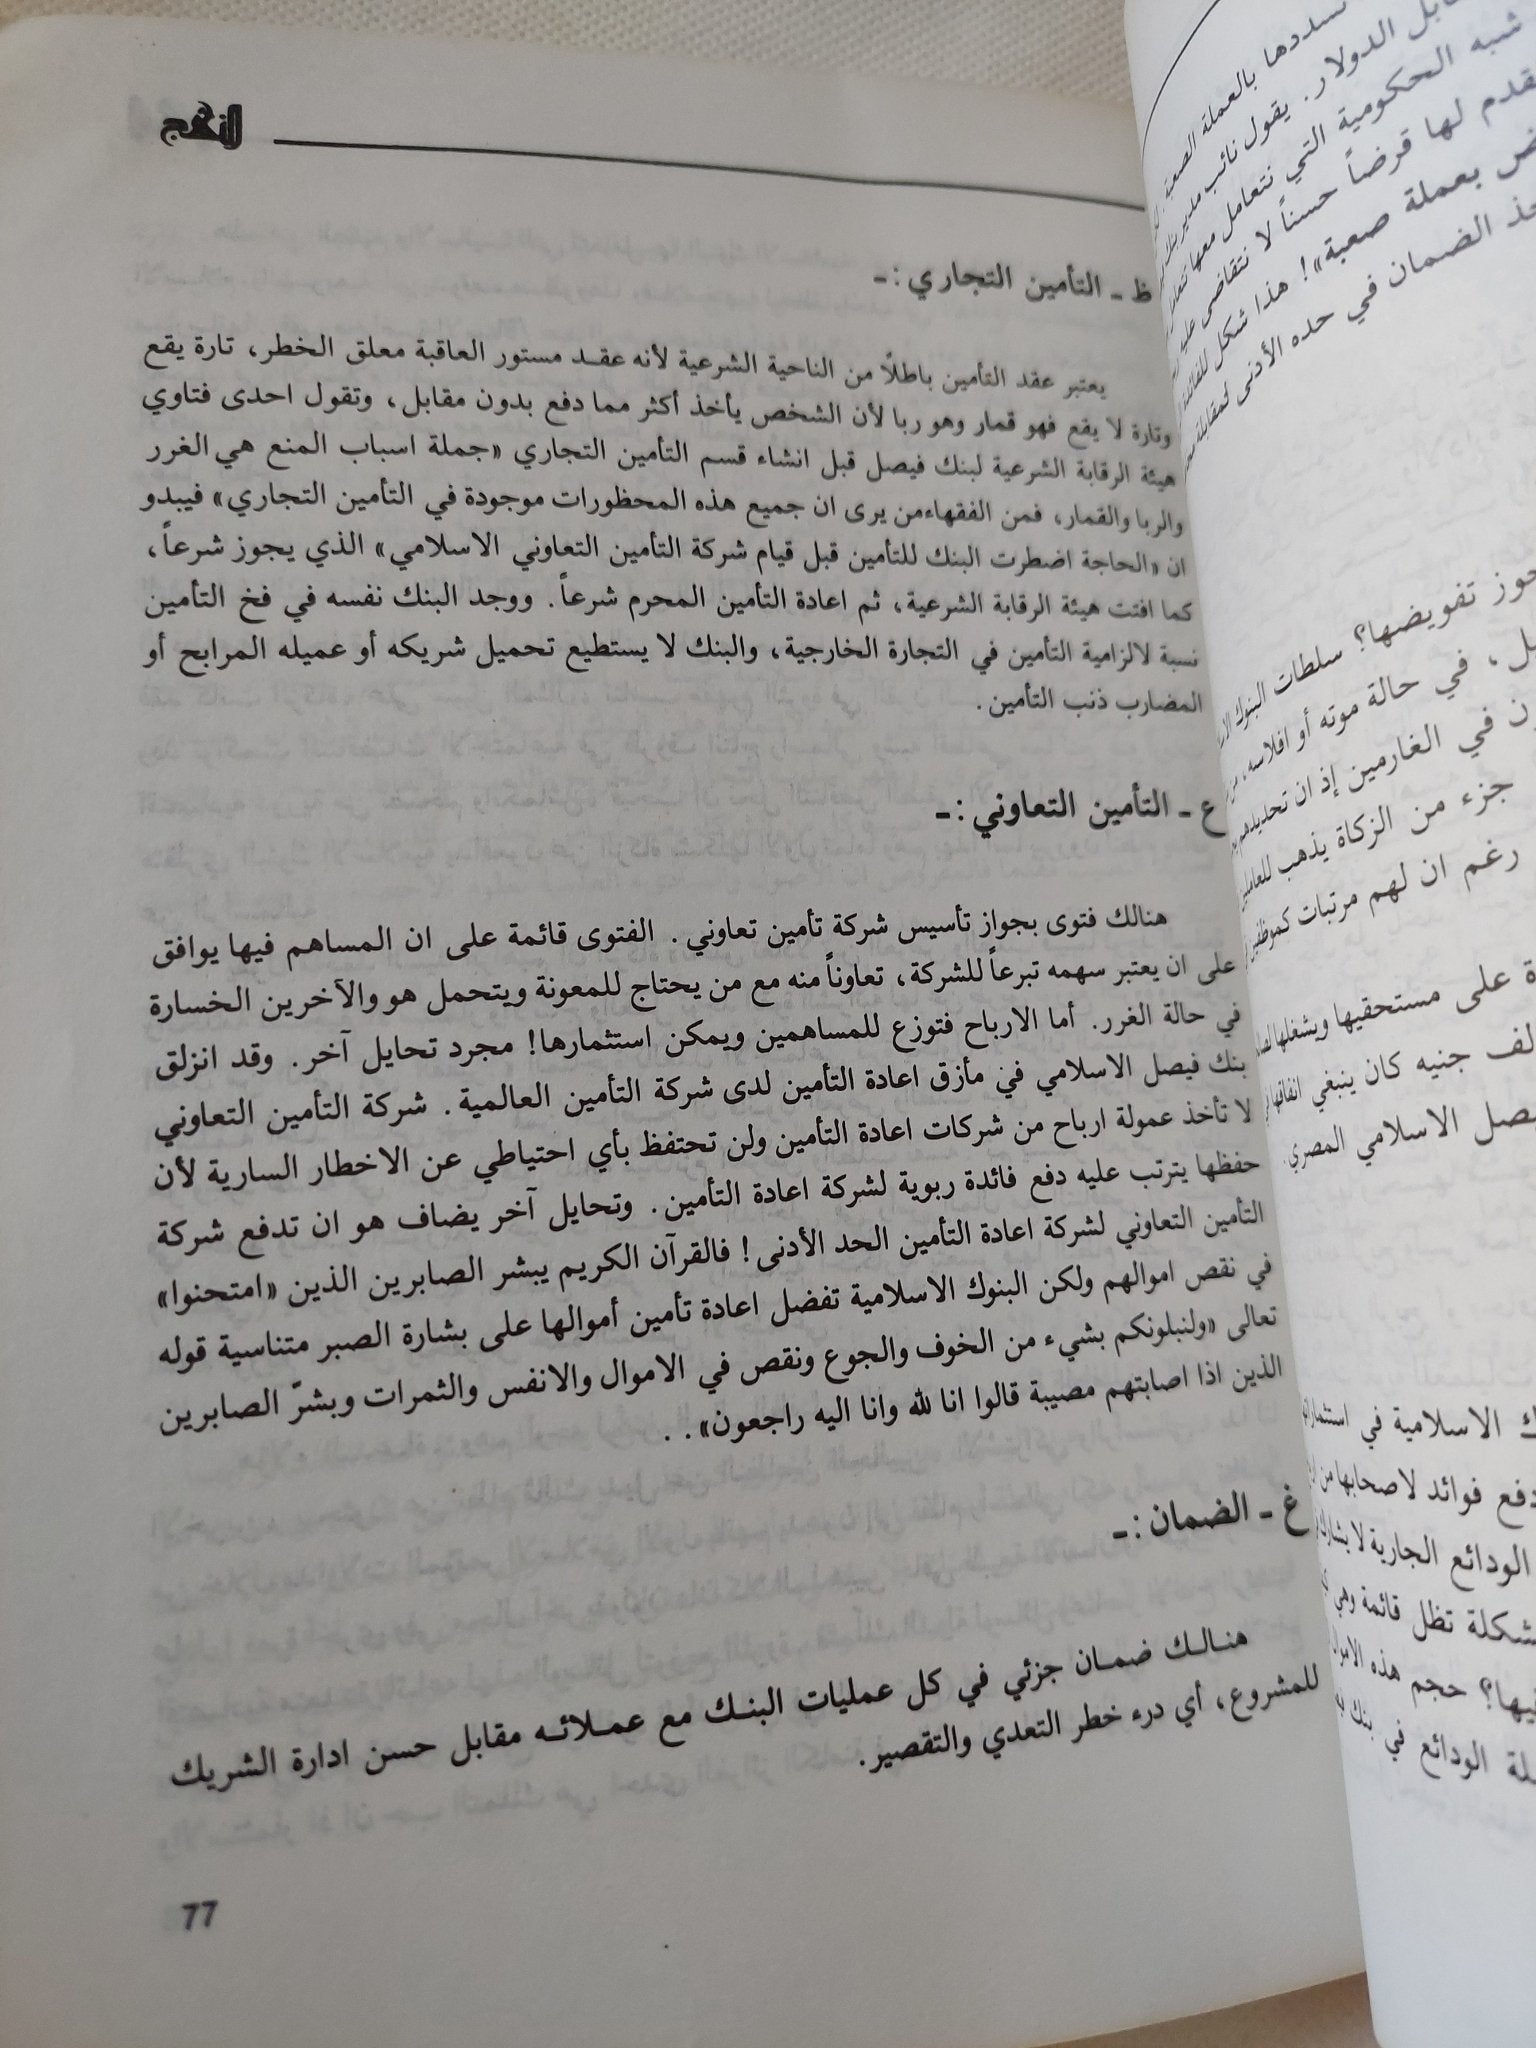 النهج
ظ ـ التأمين التجاري : ـ
يعتبر عقد التأمين باطلًا من الناحية الشرعية لأنه عقـد مستور العاقبة معلق الخطر، تارة يقع
وتارة لا يقع فهو قمار وهو ربا لأن الشخص يأخذ أكثر مما دفع بدون مقابل، وتقول احدى فتاوي
هيئة الرقابة الشرعية لبنك فيصل قبل انشاء قسم التأمين التجاري «جملة اسباب المنع هي الغرر
والربا والقمار، فمن الفقهاءمن يرى ان جميع هذه المحظورات موجودة في التأمين التجاري» فيبدو
ان «الحاجة اضطرت البنك للتأمين قبل قيام شركة التأمين التعاوني الاسلامي» الذي يجوز شرعاً،
كما افتت هيئة الرقابة الشرعية، ثم اعادة التأمين المحرم شرعاً. ووجد البنك نفسه في فخ التأمين
نسبة لالزامية التأمين في التجارة الخارجية، والبنك لا يستطيع تحميل شريكه أو عميله المرابح أو
المضارب ذنب التأمين.
ع ـ التأمين التعاوني : ـ
هنالك فتوى بجواز تأسيس شركة تأمين تعاوني. الفتوى قائمة على ان المساهم فيها يوافق
على ان يعتبر سهمه تبرعاً للشركة، تعاوناً منه مع من يحتاج للمعونة ويتحمل هو والآخرين الخسارة
في حالة الغرر. أما الارباح فتوزع للمساهمين ويمكن استثمارها! مجرد تحايل آخر. وقد انزلق
بنك فيصل الاسلامي في مأزق اعادة التأمين لدى شركة التأمين العالمية. شركة التأمين التعاوني
لا تأخذ عمولة ارباح من شركات اعادة التأمين ولن تحتفظ بأي احتياطي عن الاخطار السارية لأن
حفظها يترتب عليه دفع فائدة ربوية لشركة اعادة التأمين. وتحايل آخر يضاف هو ان تدفع شركة
التأمين التعاوني لشركة اعادة التأمين الحد الأدنى! فالقرآن الكريم يبشر الصابرين الذين «امتحنوا»
في نقص اموالهم ولكن البنوك الاسلامية تفضل اعادة تأمين أموالها على بشارة الصبر متناسية قوله
تعالى «ولنبلونكم بشيء من الخوف والجوع ونقص في الاموال والانفس والثمرات وبشرّ الصابرين
الذين اذا اصابتهم مصيبة قالوا انا لله وانا اليه راجعون»..
غ ـ الضمان : ـ
هنـالـك ضمـان جزئي في كل عمليات البنـك مع عمـلائـه مقابل حسن ادارة الشريك
للمشروع، أي درء خطر التعدي والتقصير.
77
سددها بالعملة الصعبة
ابل الدولار. يقول نائب مدير بنك
شبه الحكومية التي نتعامل معها
قدم لها قرضاً حسناً لا نتقاضى عليه
ض بعملة صعبة»! هذا شكل للفائدة
خذ الضمان في حده الأدنى لمقابلة
جوز تفويضها؟ سلطات البنوك
ل، في حالة موته أو افلاسه،
ن في الغارمين إذ ان تحديدهم
جزء من الزكاة يذهب للعاملين
رغم ان لهم مرتبات كموظفين
ة على مستحقيها ويشغلها
لف جنيه كان ينبغي انفاقها
صل الاسلامي المصري.
ك الاسلامية في
دفع فوائد لاصحابها من
الودائع الجارية لا يشارك
شكلة تظل قائمة وهي
فيها؟ حجم هذه الاموال
لة الودائع في بنك